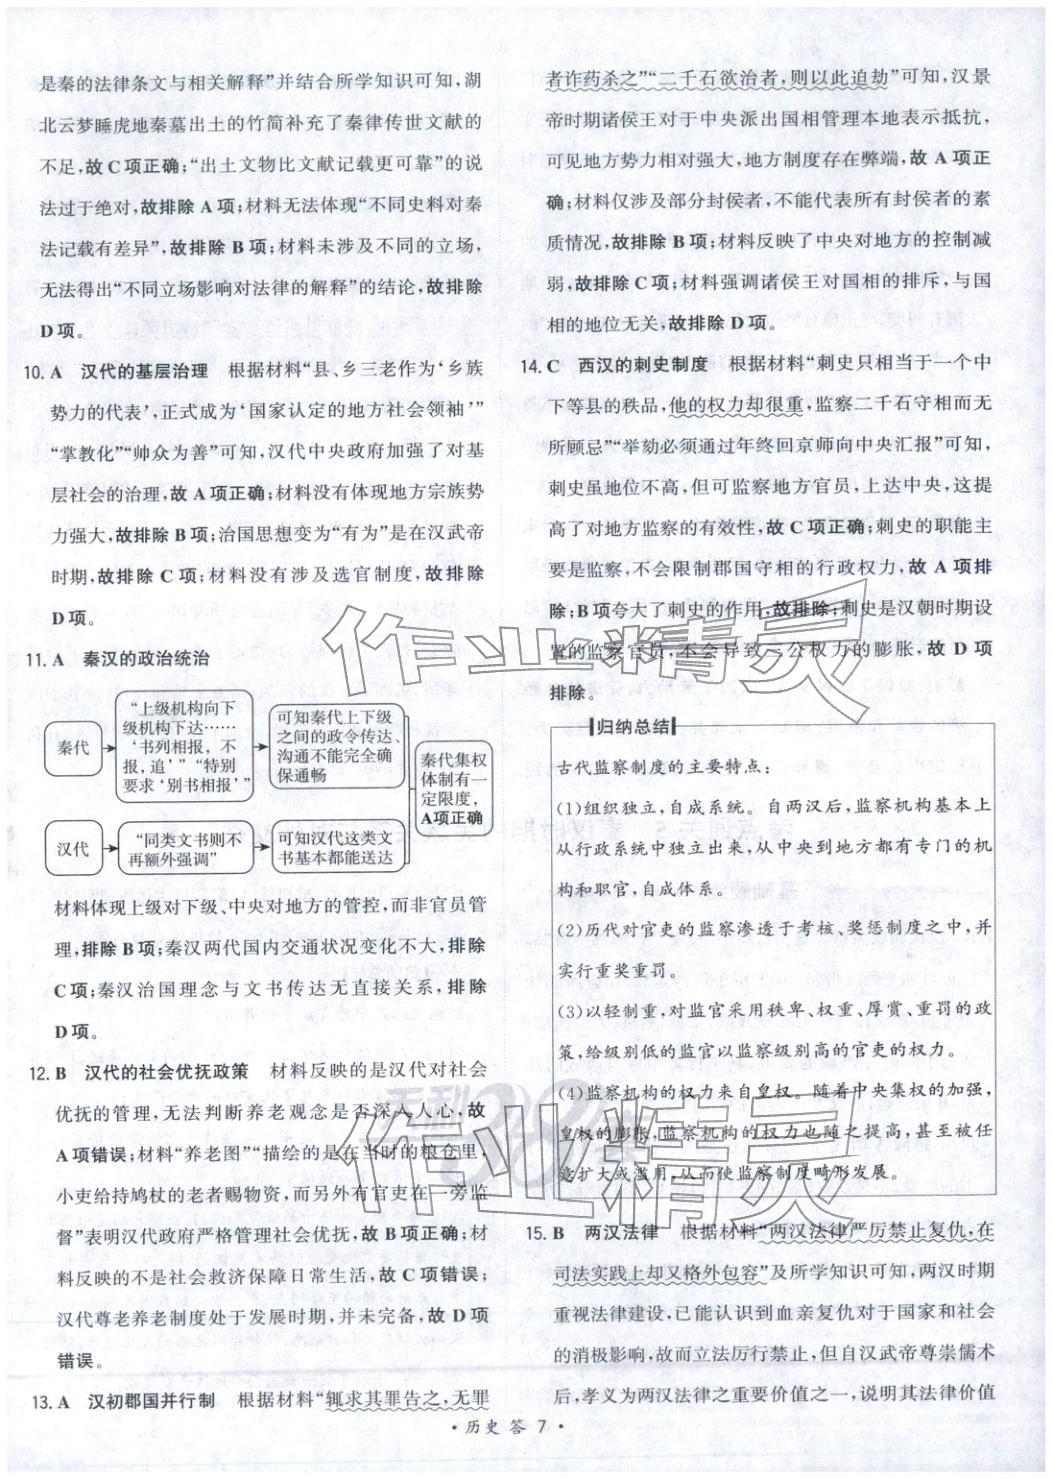 是秦的法律条文与相关解释”并结合所学知识可知，湖
北云梦睡虎地秦墓出土的竹简补充了秦律传世文献的
不足，故C项正确；“出土文物比文献记载更可靠”的说
法过于绝对，故排除A项；材料无法体现“不同史料对秦
法记载有差异”，故排除B项；材料未涉及不同的立场，
无法得出“不同立场影响对法律的解释”的结论，故排除
D项。
10. A 汉代的基层治理 根据材料“县、乡三老作为‘乡族
势力的代表’，正式成为‘国家认定的地方社会领袖’”
“掌教化”“帅众为善”可知，汉代中央政府加强了对基
层社会的治理，故A项正确；材料没有体现地方宗族势
力强大，故排除B项；治国思想变为“有为”是在汉武帝
时期，故排除C项；材料没有涉及选官制度，故排除
D项。
11. A 秦汉的政治统治
秦代
“上级机构向下
级机构下达……
‘书列相报，不
报，追’”“特别
要求‘别书相报’”
可知秦代上下级
之间的政令传达、
沟通不能完全确
保通畅
汉代
“同类文书则不
再额外强调”
可知汉代这类文
书基本都能送达
秦代集权
体制有一
定限度，
A项正确
材料体现上级对下级、中央对地方的管控，而非官员管
理，排除B项；秦汉两代国内交通状况变化不大，排除
C项；秦汉治国理念与文书传达无直接关系，排除
D项。
12. B 汉代的社会优抚政策 材料反映的是汉代对社会
优抚的管理，无法判断养老观念是否深入人心，故
A项错误；材料“养老图”“描绘的是在当时的粮仓里，
小吏给持鸠杖的老者赐物资，而另外有官吏在一旁监
督”表明汉代政府严格管理社会优抚，故B项正确；材
料反映的不是社会救济保障日常生活，故C项错误；
汉代尊老养老制度处于发展时期，并未完备，故D项
错误。
13. A 汉初郡国并行制 根据材料“辄求其罪告之，无罪
者诈药杀之”“二千石欲治者，则以此迫劫”可知，汉景
帝时期诸侯王对于中央派出国相管理本地表示抵抗，
可见地方势力相对强大，地方制度存在弊端，故A项正
确；材料仅涉及部分封侯者，不能代表所有封侯者的素
质情况，故排除B项；材料反映了中央对地方的控制减
弱，故排除C项；材料强调诸侯王对国相的排斥，与国
相的地位无关，故排除D项。
14. C 西汉的刺史制度 根据材料“刺史只相当于一个中
下等县的秩品，他的权力却很重，监察二千石守相而无
所顾忌”“举劾必须通过年终回京师向中央汇报”可知，
刺史虽地位不高，但可监察地方官员，上达中央，这提
高了对地方监察的有效性，故C项正确；刺史的职能主
要是监察，不会限制郡国守相的行政权力，故A项排
除；B项夸大了刺史的作用，故排除；刺史是汉朝时期设
置的监察官员，不会导致三公权力的膨胀，故D项
排除。
归纳总结
古代监察制度的主要特点：
(1)组织独立，自成系统。自两汉后，监察机构基本上
从行政系统中独立出来，从中央到地方都有专门的机
构和职官，自成体系。
(2)历代对官吏的监察渗透于考核、奖惩制度之中，并
实行重奖重罚。
(3)以轻制重，对监官采用秩卑、权重、厚赏、重罚的政
策，给级别低的监官以监察级别高的官吏的权力。
(4)监察机构的权力来自皇权。随着中央集权的加强，
皇权的膨胀，监察机构的权力也随之提高，甚至被任
意扩大或滥用，从而使监察制度畸形发展。
15. B 两汉法律 根据材料“两汉法律严厉禁止复仇，在
司法实践上却又格外包容”及所学知识可知，两汉时期
重视法律建设，已能认识到血亲复仇对于国家和社会
的消极影响，故而立法厉行禁止，但自汉武帝尊崇儒术
后，孝义为两汉法律之重要价值之一，说明其法律价值
·历史 答 7·
作业精灵
天利38套
作业精灵